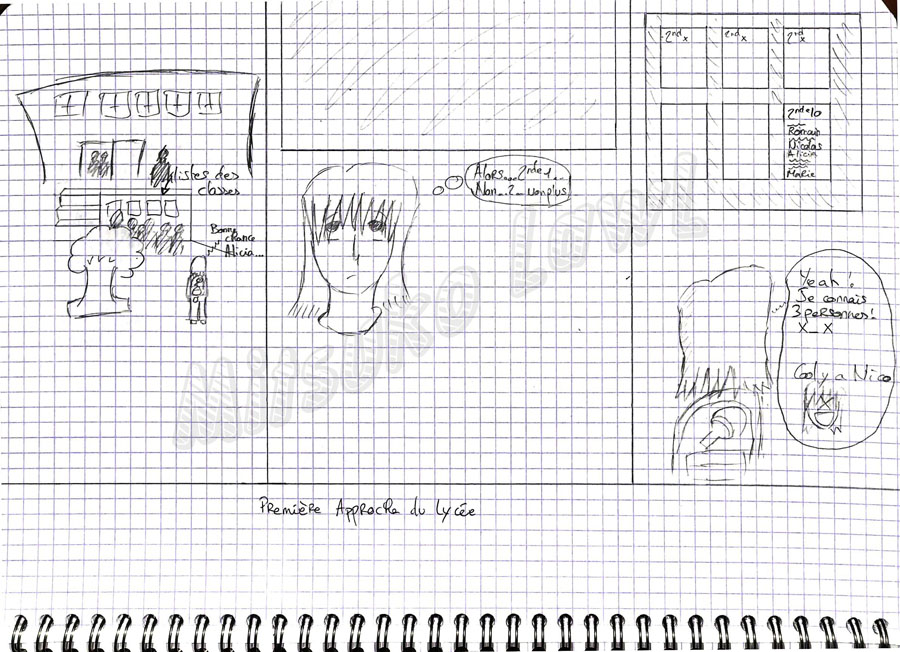 listes des
classes
Bonne
chance
Alicia...
Alors... 2nde1...
Non...2... non plus
2nd x
2nd x
2nd x
2nde10
Romain
Nicolas
Alicia
Marie
Yeah !
Je connais
3 personnes!
X_X
Cool y a Nico
Première Approche du Lycée